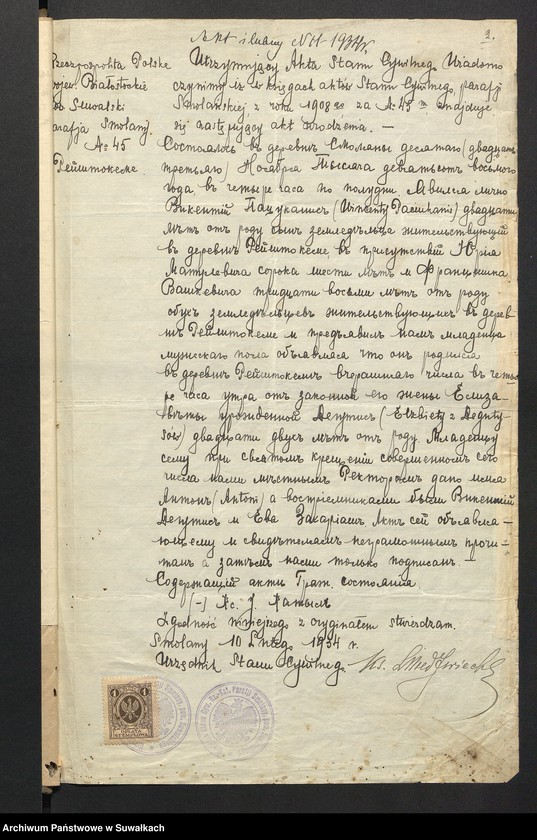 Akt ślubny № 11 1934 r.
2.
Rzeczpospolita Polska
wojew. Białostockie
Suwalski
parafja Smolany.
№ 45
Рейштокеме
Utrzymujący Akta Stanu Cywilneg. Wiadomo
czynimy iż w księgach aktów Stanu Cywilnego, parafji
Smolańskiej z roku 1908 go za № 45 m znajduje
się następujący akt urodzenia. —
Состоялось въ деревнѣ Смоляны десятаго (двадцать
третьяго) Ноября Тысяча девятьсотъ восьмого
года, въ четыре часа по полудни. Явился лично
Викентій Пацуканисъ (Wincenty Paciukanis) двадцати
лѣтъ отъ роду сынъ земледѣльца жительствующій
въ деревнѣ Рейштокеме, въ присутствіи Юрія
Матулевича сорока шести лѣтъ и Францишка
Вашкевича тридцати восьми лѣтъ отъ роду
обухъ земледѣльцевъ жительствующихъ въ дерев-
нѣ Рейштокеме и предъявилъ намъ младенца
мужескаго пола объявляя что онъ родился
въ деревнѣ Рейштокемъ вчерашняго числа въ четы-
ре часа утра отъ законной его жены Елиза-
вѣты урожденной Дегутисъ (Elżbiety z Deguty-
sów) двадцати двухъ лѣтъ отъ роду. Младенцу
сему при святомъ крещеніи совершенномъ сего
числа нами мѣстнымъ Ректоромъ дано имя
Антонъ (Antoni) а воспріемниками были Викентій
Дегутисъ и Ева Захаріашъ. Актъ сей объявля-
ющему и свидѣтелямъ неграмотнымъ прочи-
танъ а затѣмъ нами только подписанъ. —
Содержащій акты Граж. состоянія
(-) Кс. J.
Zgodność niniejszego z oryginałem stwierdzam.
Smolany 10 Lutego 1934 r.
Urzędnik Stanu Cywilneg. Ks.
1 1
OPŁATA
STEMPLOWA
Archiwum Państwowe w Suwałkach